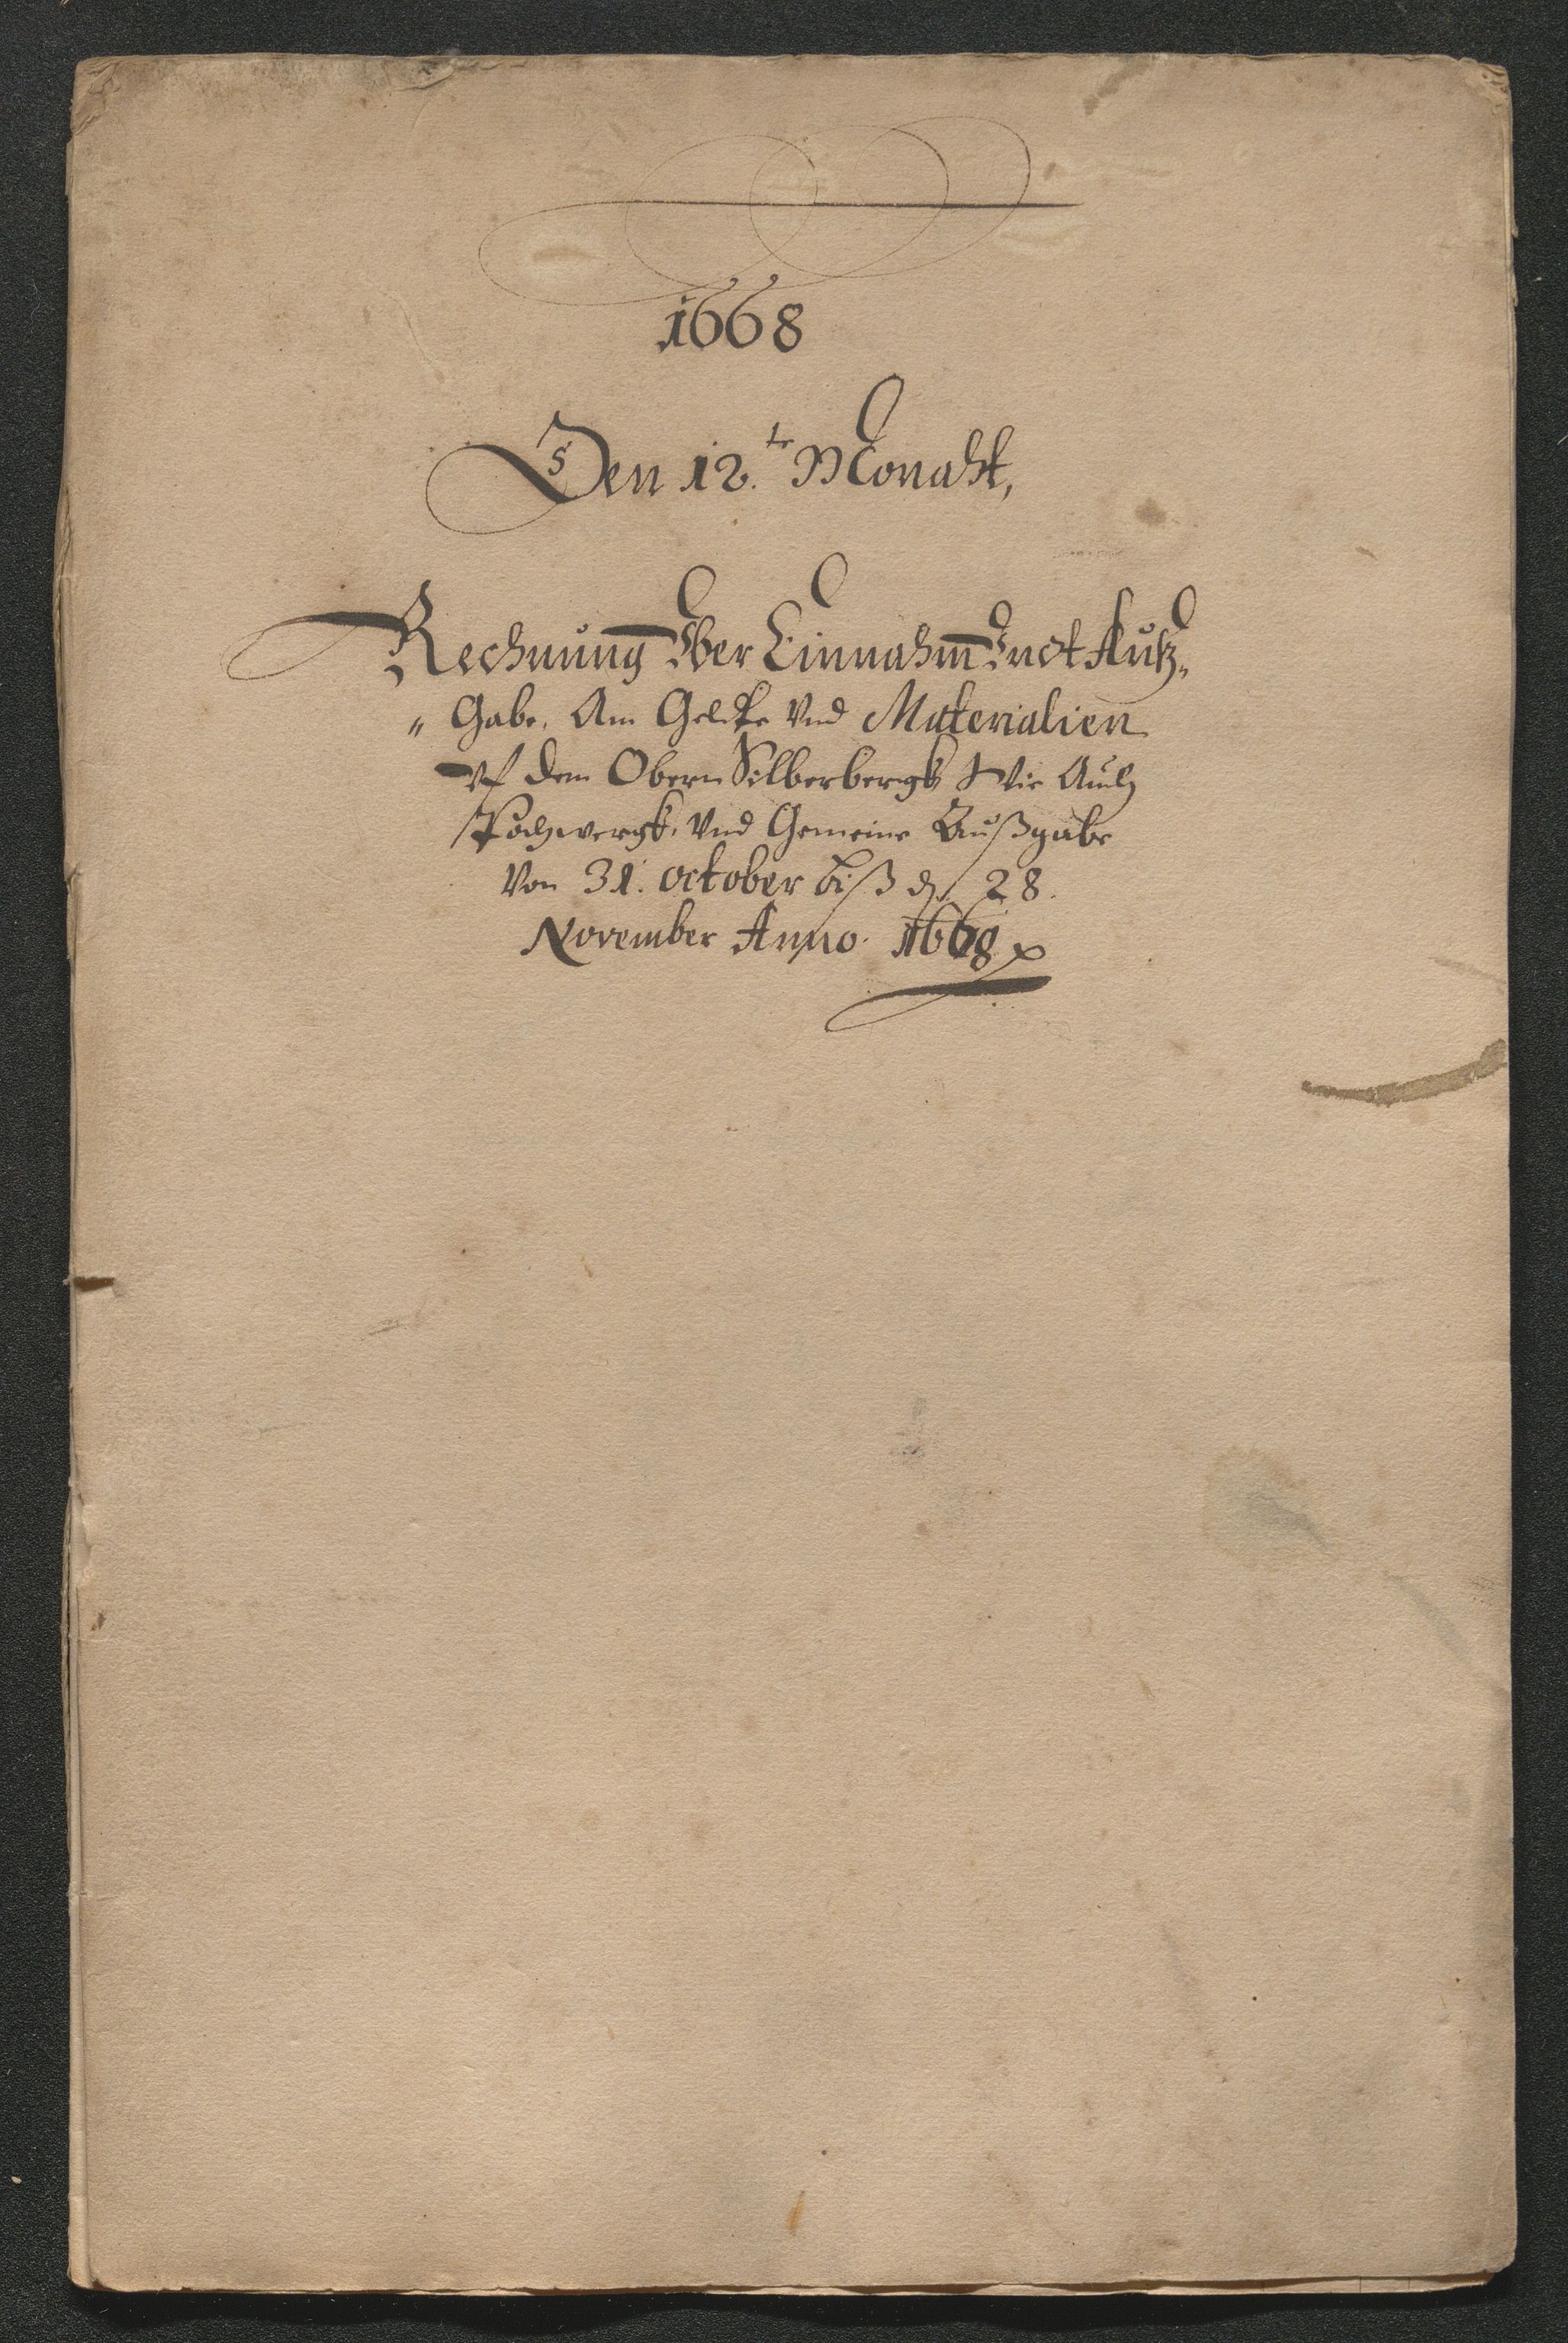 1668
Den 12.te Monaht,
Rechnung Vber Einnahm Vndt Auß„
„ Gabe, Am Geldte Vnd Materialien
Vf dem Obern Silberbergk Wie Auch
Pochwergk, Vnd Gemeine Außgabe
Von 31. october biß den 28.
November Anno. 1668